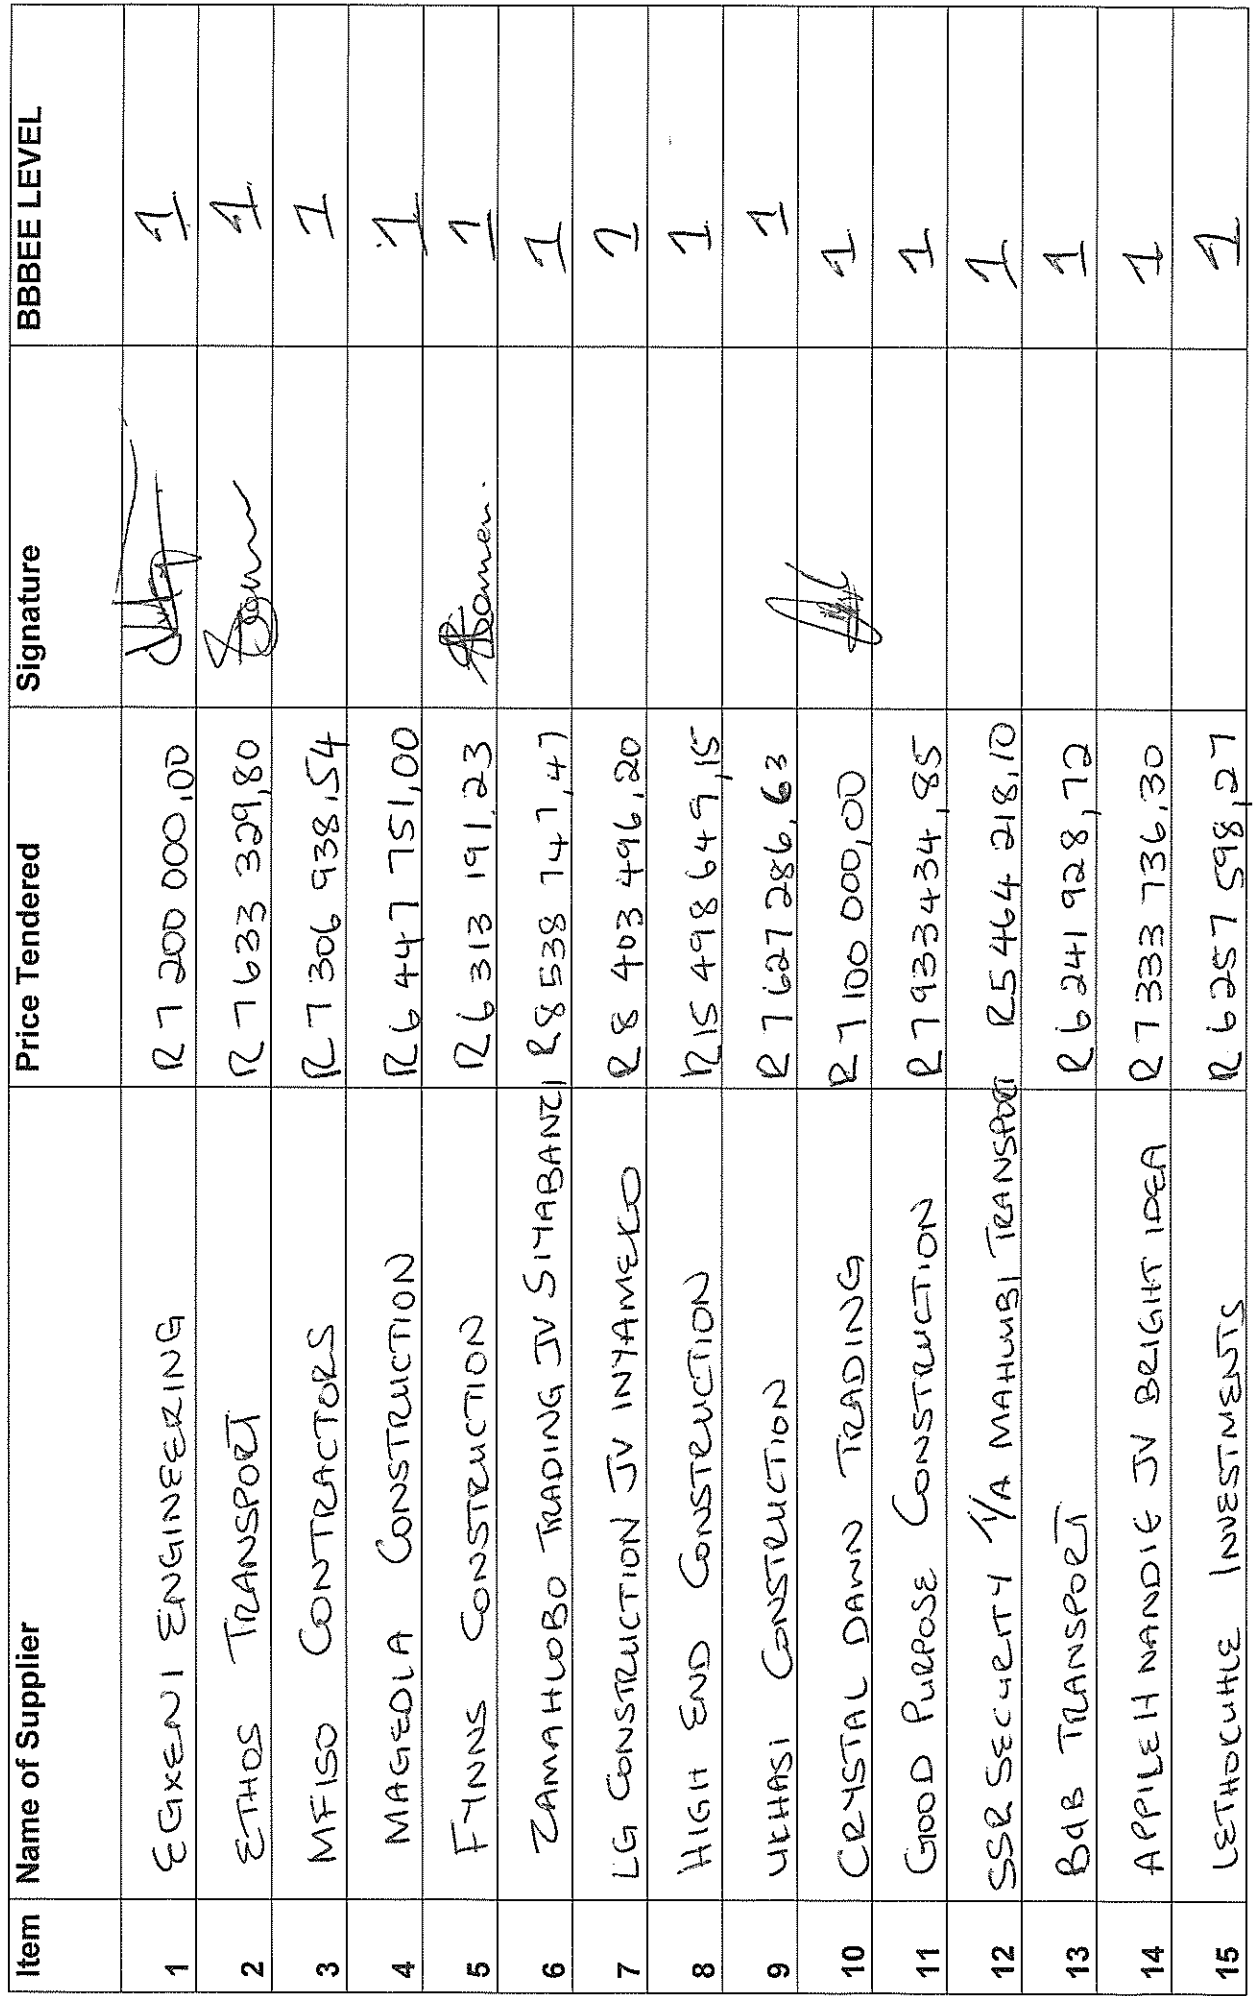 Item Name of Supplier Price Tendered Signature BBBEE LEVEL
1 EGXENI ENGINEERING R 7 200 000,00 1
2 ETHOS TRANSPORT R 7 633 329,80 1
3 MFISO CONTRACTORS R 7 306 938,54 1
4 MAGEDLA CONSTRUCTION R 6 447 751,00 1
5 FYNNS CONSTRUCTION R 6 313 191,23 1
6 ZAMAHLOBO TRADING JV SIYABANZI R8 538 747,47 1
7 LG CONSTRUCTION JV INYAMEKO R 8 403 496,20 1
8 HIGH END CONSTRUCTION R15 498 649,15 1
9 UKHASI CONSTRUCTION R 7 627 286,63 1
10 CRYSTAL DAWN TRADING R 7 100 000,00 1
11 GOOD PURPOSE CONSTRUCTION R 7 933 434,85 1
12 SSR SECURITY T/A MAHUMBI TRANSPORT R5 464 218,10 1
13 B&B TRANSPORT R 6 241 928,72 1
14 APPILEH NANDIE JV BRIGHT IDEA R 7 333 736,30 1
15 LETHOCUHLE INVESTMENTS R 6 257 598,27 1